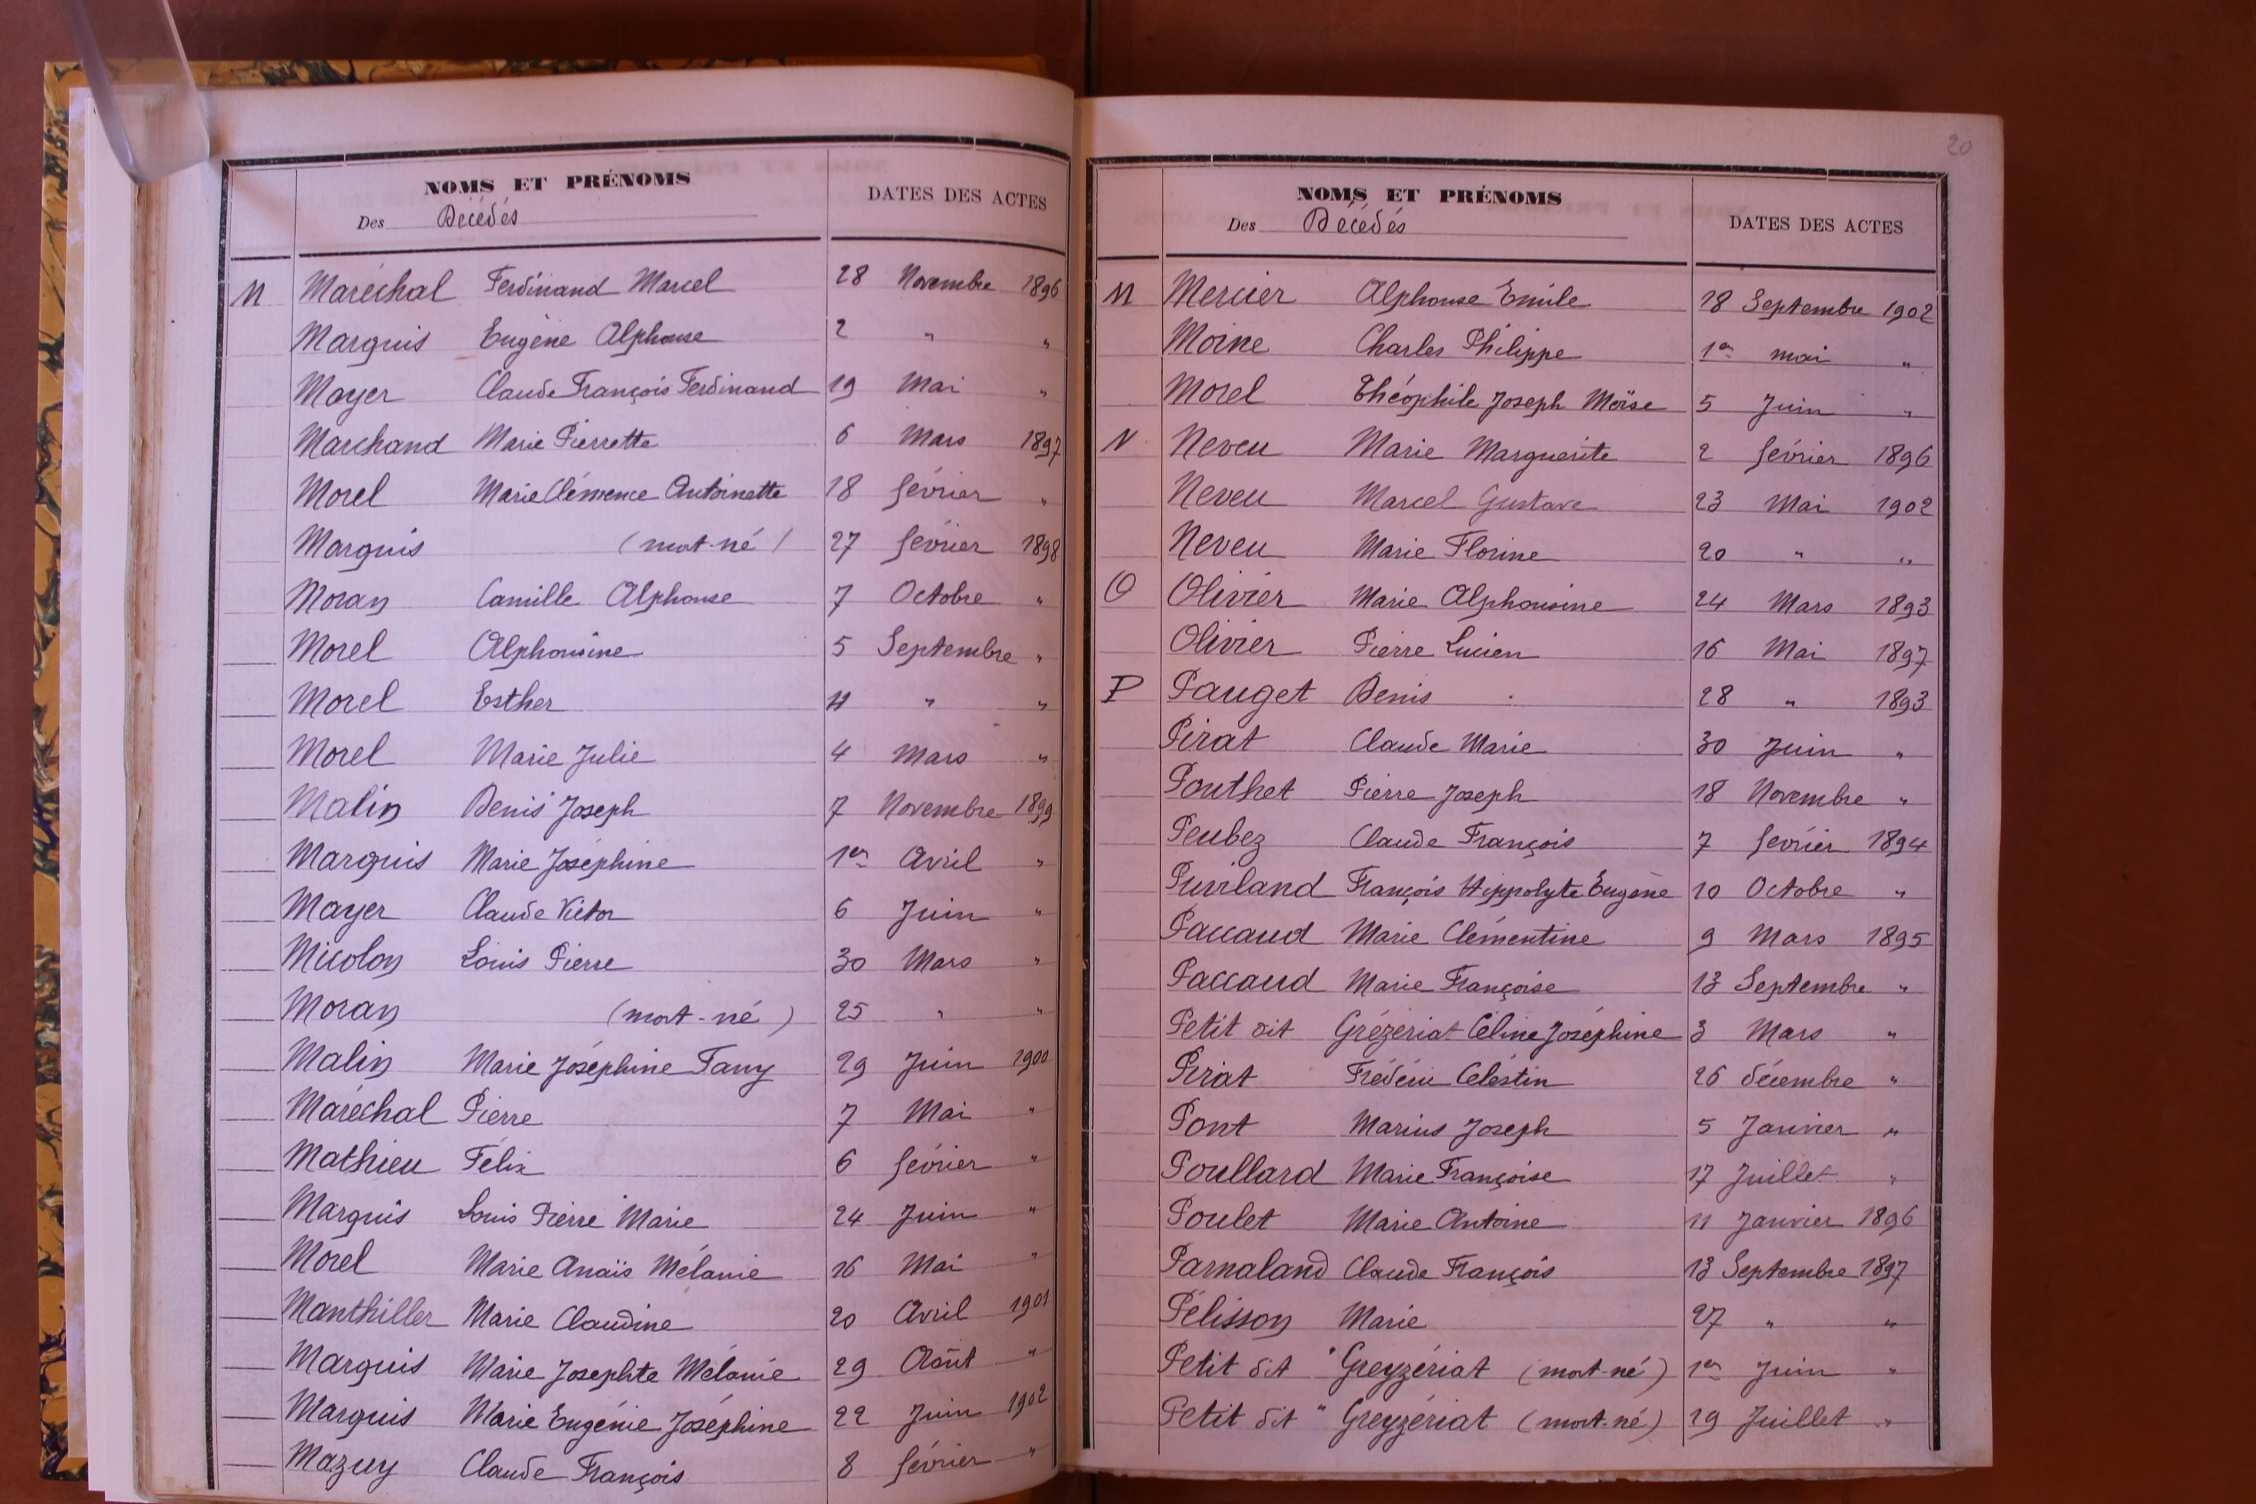 NOMS ET PRÉNOMS
DATES DES ACTES
Des Décédés
M Maréchal Ferdinand Marcel 28 Novembre 1896
Marquis Eugène Alphonse 2 " "
Mayer Claude François Ferdinand 19 Mai "
Marchand Marie Pierrette 6 Mars 1897
Morel Marie Clémence Antoinette 18 février "
Marquis (mort-né) 27 février 1898
Moran Camille Alphonse 7 Octobre "
Morel Alphonsine 5 Septembre "
Morel Esther " "
Morel Marie Julie 4 Mars "
Malin Denis Joseph 7 Novembre 1899
Marquis Marie Joséphine 1er Avril "
Mayer Claude Victor 6 Juin "
Micolon Louis Pierre 30 Mars "
Moran (mort-né) 25 " "
Malin Marie Joséphine Fany 29 Juin 1900
Maréchal Pierre 7 Mai "
Mathieu Félix 6 février "
Marquis Louis Pierre Marie 24 Juin "
Morel Marie Anaïs Mélanie 16 Mai "
Manthiller Marie Claudine 20 Avril 1901
Marquis Marie Josephte Mélanie 29 Août "
Marquis Marie Eugénie Joséphine 22 Juin 1902
Mazuy Claude François 8 février "
20
NOMS ET PRÉNOMS
DATES DES ACTES
Des Décédés
M Mercier Alphonse Emile 18 Septembre 1902
Moine Charles Philippe 1er mai "
Morel Théophile Joseph Moïse 5 Juin "
N Neveu Marie Marguerite 2 février 1896
Neveu Marcel Gustave 23 Mai 1902
Neveu Marie Florine 20 " "
O Olivier Marie Alphonsine 24 Mars 1893
Olivier Pierre Lucien 16 Mai 1897
P Pauget Denis 28 " 1893
Pirat Claude Marie 30 Juin "
Pouthet Pierre Joseph 18 Novembre "
Peubez Claude François 7 février 1894
Puviland François Hippolyte Eugène 10 Octobre "
Paccaud Marie Clémentine 9 Mars 1895
Paccaud Marie Françoise 13 Septembre "
Petit dit Grézériat Céline Joséphine 3 Mars "
Pirat Frédéric Célestin 26 décembre "
Pont Marius Joseph 5 Janvier "
Poullard Marie Françoise 17 Juillet "
Poulet Marie Antoine 11 Janvier 1896
Parnaland Claude François 13 Septembre 1897
Pélisson Marie 27 " "
Petit dit " Greyzériat (mort-né) 1er Juin "
Petit dit " Greyzériat (mort-né) 29 Juillet "